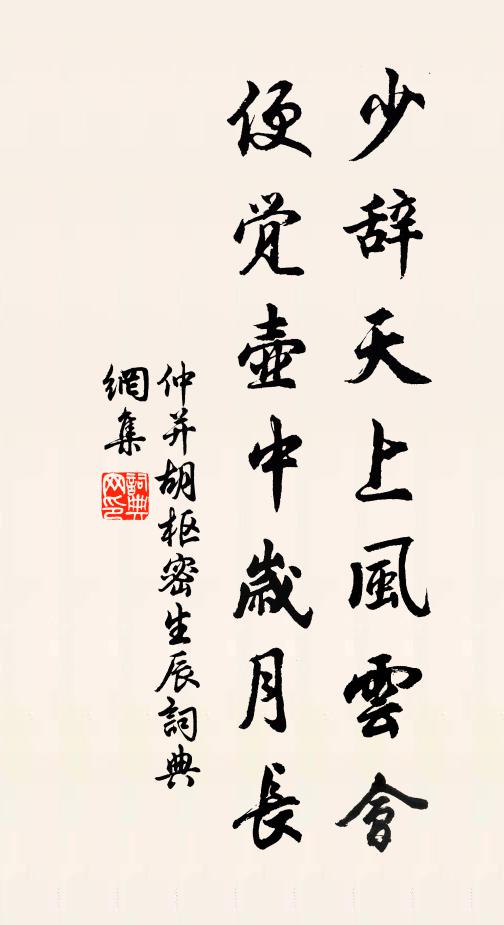 少辞天上風雲會
便觉壺中歲月長
仲并胡枢密生辰詞典
網集
詞典
网印